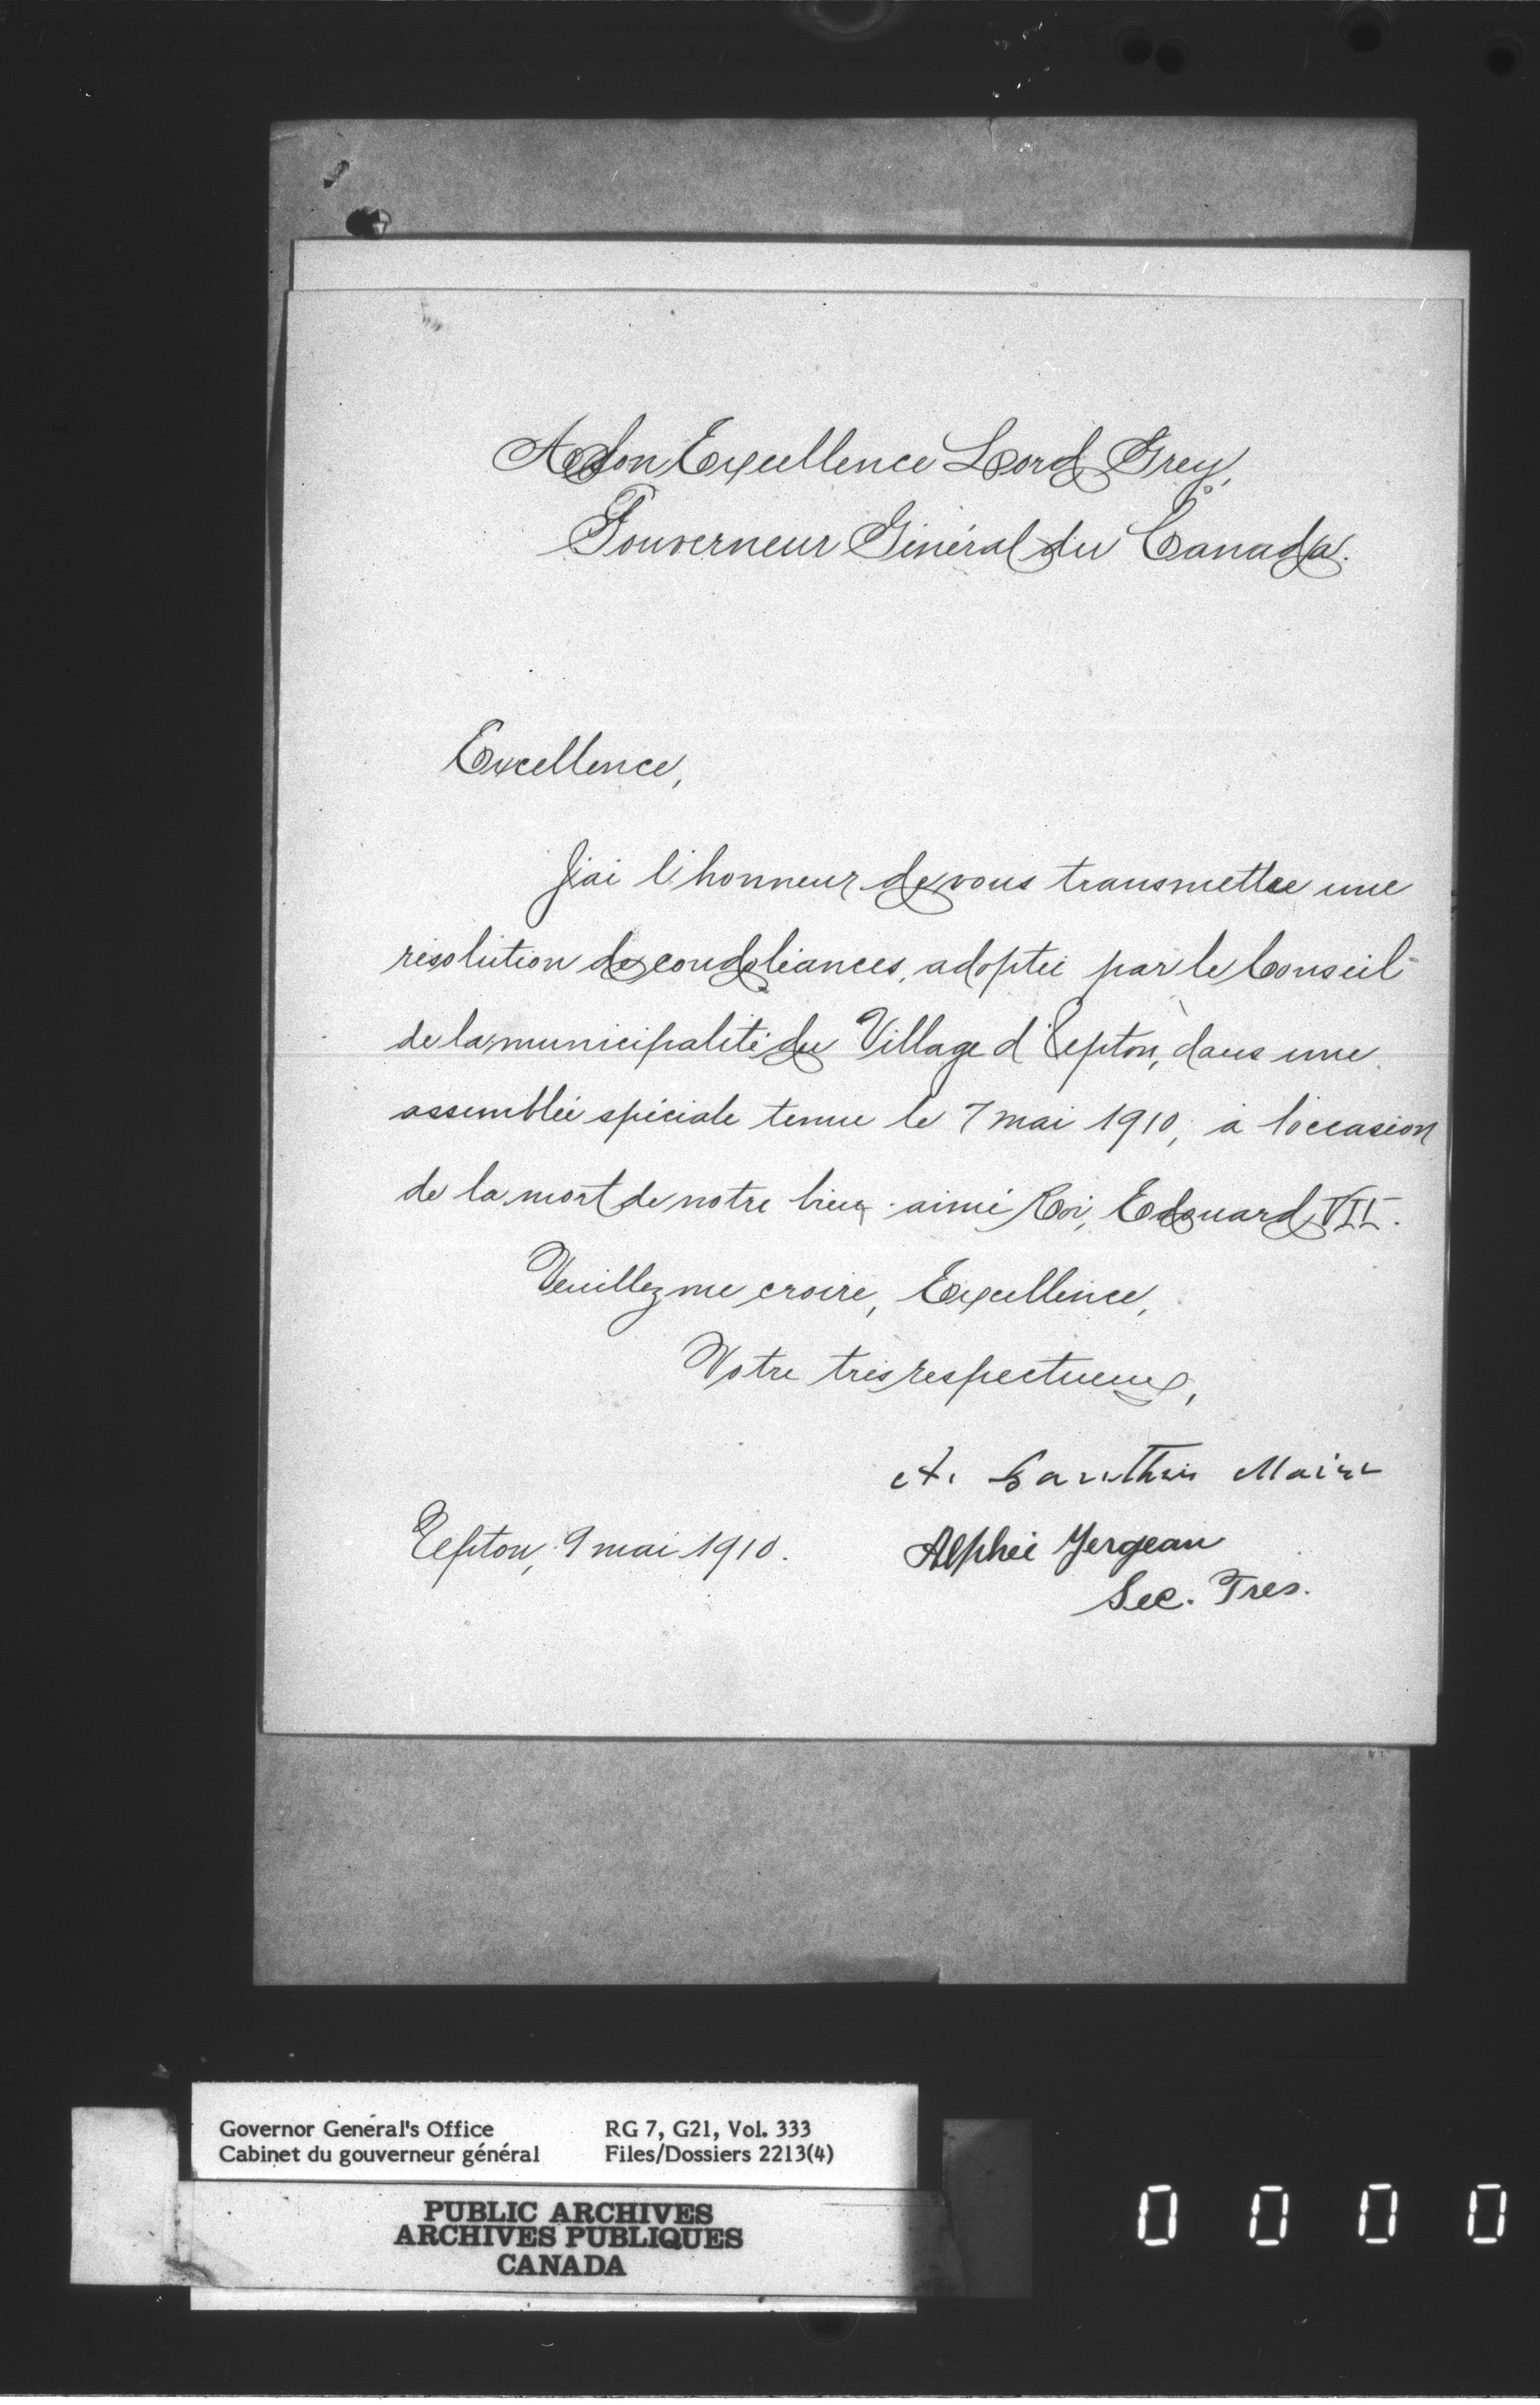 A Son Excellence Lord Grey,
Gouverneur Général du Canada.
Excellence,
J'ai l'honneur de vous transmettre une
résolution de condoléances, adoptée par le Conseil
de la municipalité du Village d'Upton, dans une
assemblée spéciale tenue le 7 mai 1910, à l'occasion
de la mort de notre bien-aimé Roi, Edouard VII.
Veuillez me croire, Excellence,
Votre très respectueux,
A. Gauthier Maire
Upton, 9 mai 1910.
Alphée
Sec. Tres.
Governor General's Office
Cabinet du gouverneur général
RG 7, G21, Vol. 333
Files/Dossiers 2213(4)
PUBLIC ARCHIVES
ARCHIVES PUBLIQUES
CANADA
0 0 0 0